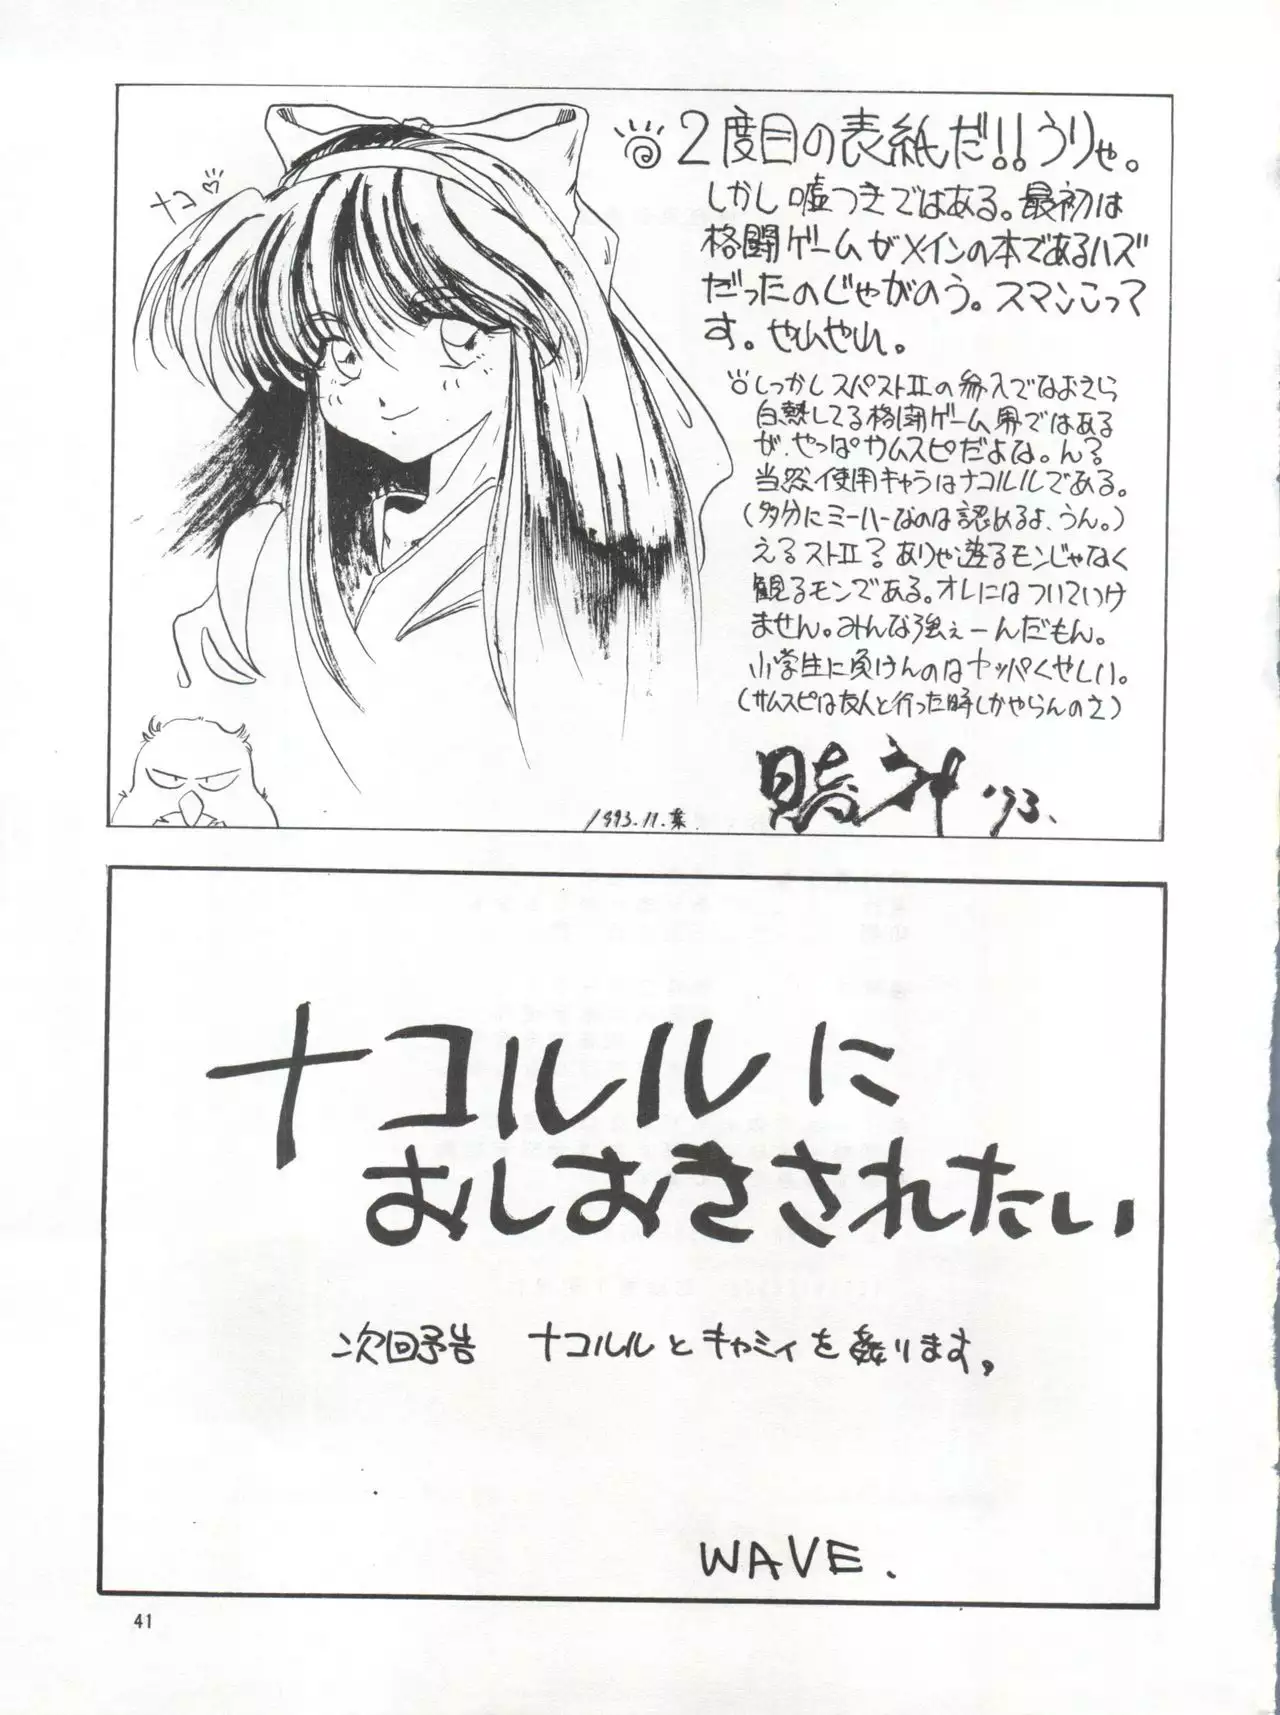 ナコ
2度目の表紙だ!!うりゃ。
しかし嘘つきではある。最初は
格闘ゲームがメインの本であるハズ
だったのじゃがのう。スマンこって
す。やしやし。
しっかしスパストⅡの参入でなおさら
白熱してる格闘ゲーム界ではある
が、やっぱサムスピだよな。ん?
当然、使用キャラはナコルルである。
(多分にミーハーなのは認めるよ、うん。)
えるストⅡ? ありゃ遊るモンじゃなく
観るモンである。オレにはついていけ
ません。みんな強ぇーんだもん。
小学生に負けんのはヤッパくやしい。
(サムスピは友人と行った時しかやらんのさ)
'93.
1993.11.
ナコルルに
おしおきされたい
次回予告 ナコルルとキャミィを姦ります。
WAVE.
41